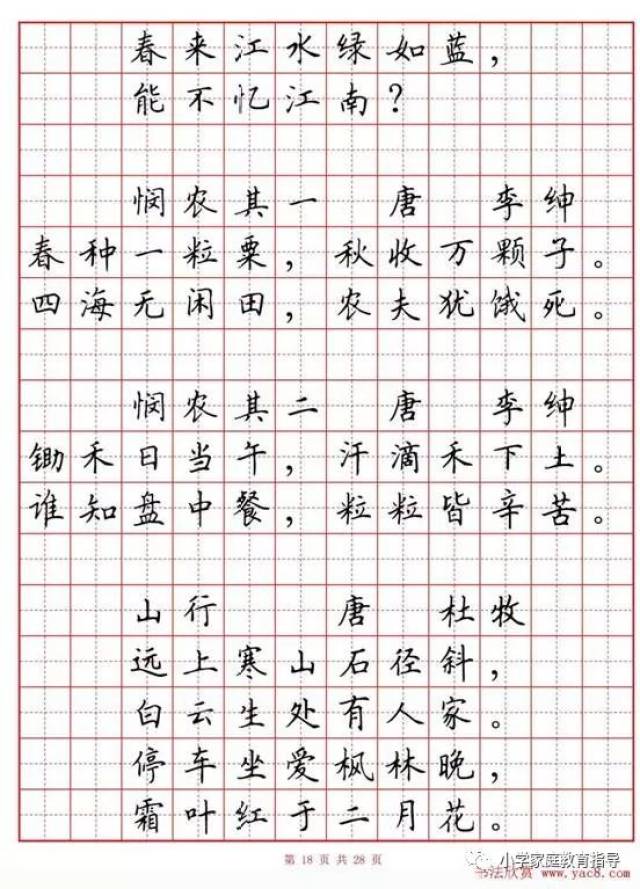 春来江水绿如蓝，
能不忆江南？
悯农其一 唐 李绅
春种一粒粟，秋收万颗子。
四海无闲田，农夫犹饿死。
悯农其二 唐 李绅
锄禾日当午，汗滴禾下土。
谁知盘中餐，粒粒皆辛苦。
山行 唐 杜牧
远上寒山石径斜，
白云生处有人家。
停车坐爱枫林晚，
霜叶红于二月花。
第 18 页 共 28 页
小学家庭教育指导
书法欣赏 www.yac8.com